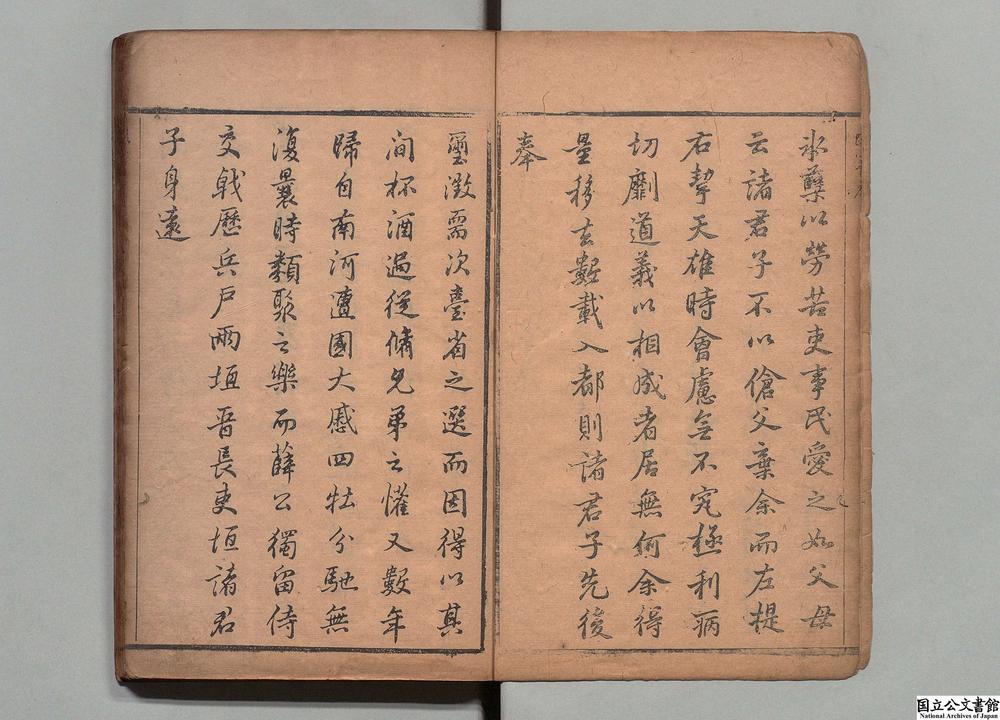 氷蘗以勞苦吏事民愛之如父母
云諸君子不以傖父棄余而左提
右挈天雄時會慮無不究極利病
切劘道義以相成者居無何余得
量移去數載入都則諸君子先後
奉
璽徵需次臺省之選而因得以其
间杯酒過從脩兄弟之懽又數年
歸自南河遭國大慼四牡分馳無
復曩時類聚之樂而薛公獨留侍
交戟歷兵戶兩垣晋長吏垣諸君
子身遠
国立公文書館
National Archives of Japan